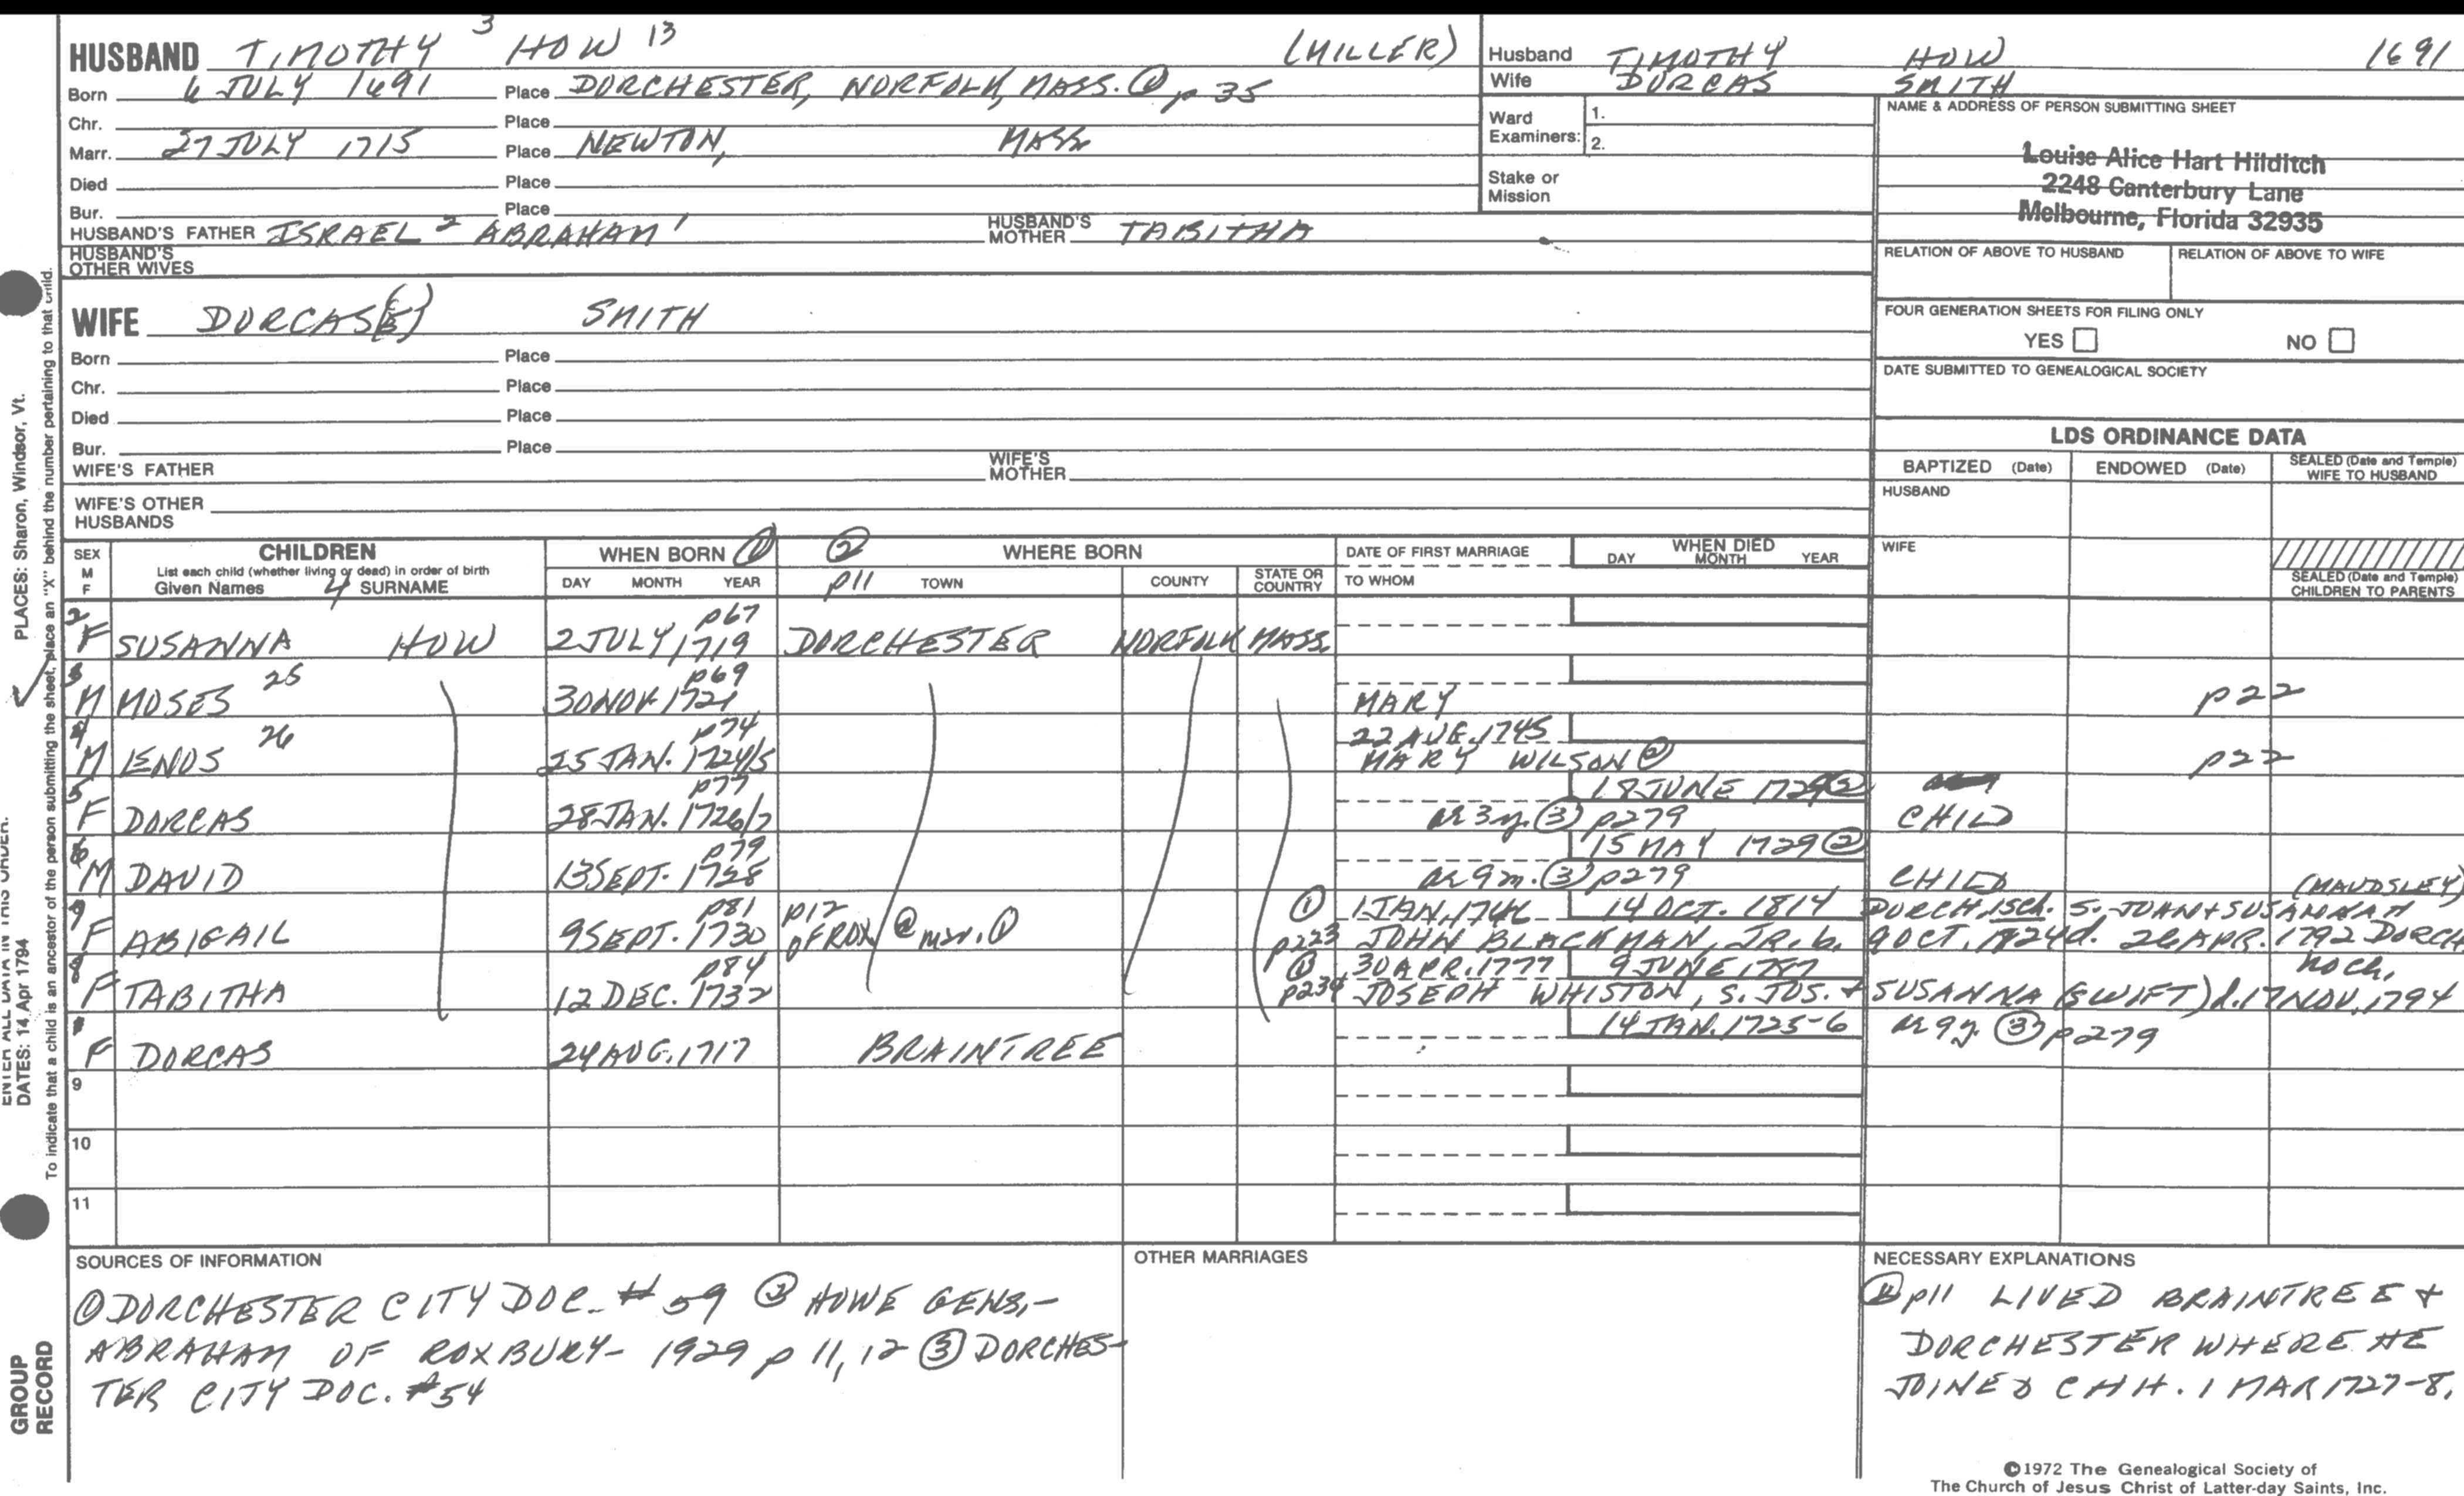 HUSBAND TIMOTHY 3 HOW 13 (MILLER)
Born 6 JULY 1691 Place DORCHESTER, NORFOLK, MASS. ① p 35
Chr. Place
Marr. 27 JULY 1715 Place NEWTON, MASS
Died Place
Bur. Place
HUSBAND'S FATHER ISRAEL 2 ABRAHAM 1 HUSBAND'S MOTHER TABITHA
HUSBAND'S OTHER WIVES
WIFE DORCAS(E) SMITH
Born Place
Chr. Place
Died Place
Bur. Place
WIFE'S FATHER WIFE'S MOTHER
WIFE'S OTHER HUSBANDS
Husband TIMOTHY HOW 1691
Wife DORCAS SMITH
Ward Examiners: 1.
2.
Stake or Mission
NAME & ADDRESS OF PERSON SUBMITTING SHEET
Louise Alice Hart Hilditch
2248 Canterbury Lane
Melbourne, Florida 32935
RELATION OF ABOVE TO HUSBAND RELATION OF ABOVE TO WIFE
FOUR GENERATION SHEETS FOR FILING ONLY
YES NO
DATE SUBMITTED TO GENEALOGICAL SOCIETY
LDS ORDINANCE DATA
BAPTIZED (Date) ENDOWED (Date) SEALED (Date and Temple) WIFE TO HUSBAND
HUSBAND
WIFE
SEALED (Date and Temple) CHILDREN TO PARENTS
SEX M F CHILDREN
List each child (whether living or dead) in order of birth
Given Names 4 SURNAME
WHEN BORN ①
DAY MONTH YEAR
② p11 WHERE BORN
TOWN COUNTY STATE OR COUNTRY
DATE OF FIRST MARRIAGE
TO WHOM
WHEN DIED
DAY MONTH YEAR
2 F SUSANNA HOW 2 JULY 1719 p67 DORCHESTER NORFOLK MASS.
3 M MOSES 25 30 NOV. 1721 p69 MARY p22
4 M ENOS 26 25 JAN. 1724/5 p74 22 AUG. 1745 MARY WILSON ② p22
5 F DORCAS 28 JAN. 1726/7 p77 18 JUNE 1729 ② ae 3 y. ③ p279 CHILD
6 M DAVID 13 SEPT. 1728 p79 15 MAY 1729 ② ae 9 m. ③ p279 CHILD
7 F ABIGAIL 9 SEPT. 1730 p81 p12 of ROX/ @ mar. ① ① p223 1 JAN. 1746 14 OCT. 1814 DORCH, 1sch. S. JOHN + SUSANNAH (MAUDSLEY)
JOHN BLACKMAN, JR. b. 9 OCT. 1724 d. 26 APR. 1792 DORCH
8 F TABITHA 12 DEC. 1732 p84 ① p234 30 APR. 1777 9 JUNE 1787 no ch.
JOSEPH WHISTON, S. JOS. + SUSANNA (SWIFT) d. 17 NOV. 1794
1 F DORCAS 24 AUG. 1717 BRAINTREE 14 JAN. 1725-6 ae 9 y. ③ p279
9
10
11
SOURCES OF INFORMATION
① DORCHESTER CITY DOC. # 59 ② HOWE GENS,-
ABRAHAM OF ROXBURY- 1929 p 11, 12 ③ DORCHES-
TER CITY DOC. #54
OTHER MARRIAGES
NECESSARY EXPLANATIONS
p11 LIVED BRAINTREE +
DORCHESTER WHERE HE
JOINED CHH. 1 MAR 1727-8.
©1972 The Genealogical Society of
The Church of Jesus Christ of Latter-day Saints, Inc.
PLACES: Sharon, Windsor, Vt.
ENTER ALL DATA IN THIS ORDER:
DATES: 14 Apr 1794
To indicate that a child is an ancestor of the person submitting the sheet, place an "X" behind the number pertaining to that child.
GROUP
RECORD